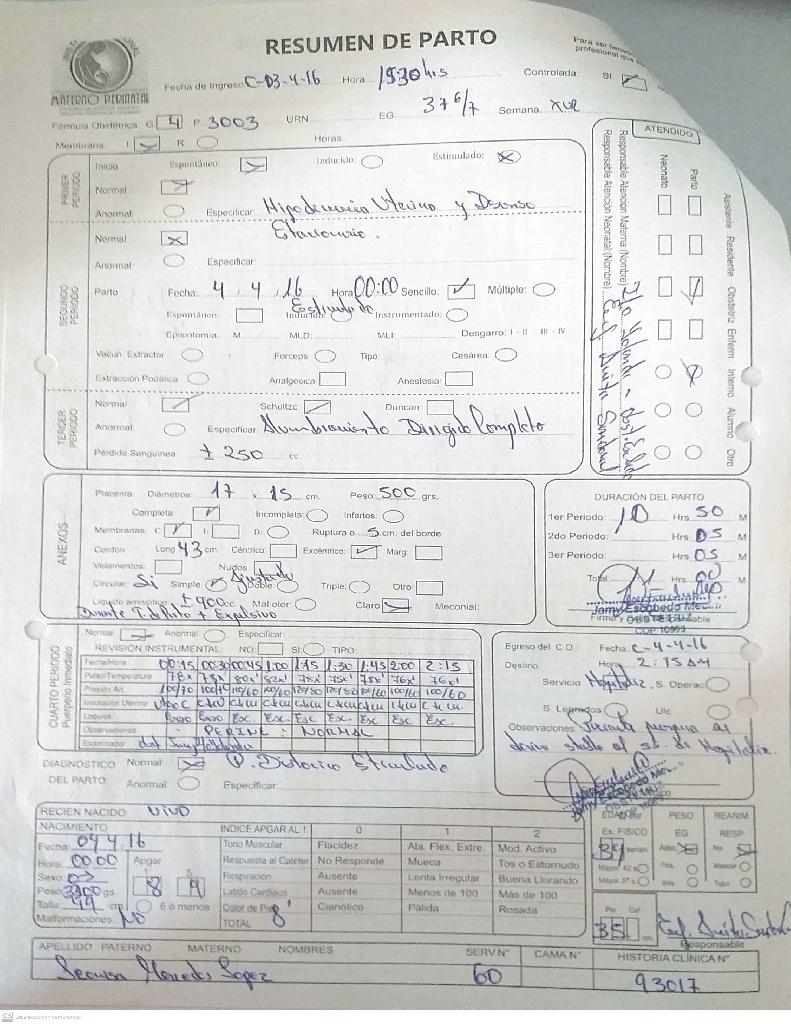 MATERNO PERINATAL
RESUMEN DE PARTO
Para ser llenado
profesional que
Fecha de Ingreso C-03-4-16 Hora 1930 hrs Controlada SI
Fórmula Obstétrica: G 4 P 3003 URN EG 37 6/7 Semana x UR
Membrana: I R Horas
PRIMER PERIODO
Inicio Espontáneo: Inducido Estimulado:
Normal
Anormal Especificar: Hipodinamia Uterina y Descenso
Estacionario.
SEGUNDO PERIODO
Normal
Anormal: Especificar:
Parto Fecha: 4 / 4 / 16 Hora 00:00 Sencillo: Múltiple:
Espontáneo: Inducido Estimulado Instrumentado:
Episiotomía: M MLD: MLI: Desgarro: I - II - III - IV
Vacun. Extractor Forceps Tipo: Cesárea:
Extracción Podálica Analgésica Anestesia:
TERCER PERIODO
Normal Schultze Duncan:
Anormal: Especificar Alumbramiento Dirigido Completo
Pérdida Sanguínea ± 250 cc
ATENDIDO
Neonato Parto
Responsable Atención Materna (Nombre)
Responsable Atención Neonatal (Nombre)
Asistente Residente Obstetriz Enferm Interno Alumno Otro
ANEXOS
Placenta: Diámetros: 17 x 15 cm. Peso: 500 grs.
Completa: Incompleta: Infartos:
Membranas: C I: D: Ruptura a 5 cm. del borde
Cordón Long 43 cm. Céntrico Excéntrico: Marg:
Velamentos: Nudos:
Circular: Si Simple Ajustado Doble: Triple: Otro
Líquido amniótico ± 900 cc Mal olor Claro Meconial:
Durante T. de Parto + Expulsivo
DURACIÓN DEL PARTO
1er Periodo: 10 Hrs 50 M
2do Periodo: Hrs 05 M
3er Periodo: Hrs 05 M
Total Hrs 00 M
Jamy Escobedo
OBSTETRIZ
COP 10999
CUARTO PERIODO
Puerperio Inmediato
Normal Anormal: Especificar
REVISIÓN INSTRUMENTAL NO: SI: TIPO:
Fecha/Hora 00:15 00:30 00:45 1:00 1:15 1:30 1:45 2:00 2:15
Pulso/Temperatura 78x' 78x' 80x' 82x' 78x' 75x' 78x' 76x' 76x'
Presión Art. 100/70 100/70 100/60 100/60 120/80 120/80 100/60 100/60 100/60
Involución Uterina
Loquios Esc. Esc. Esc. Esc. Esc. Esc.
Observaciones - PERINE : NORMAL
Examinador
Egreso del C.O. Fecha C-4-4-16
Destino Hora 2:15 AM
Servicio Hospitaliz. S. Operac
S. Legrados Uic
Observaciones: Paciente puerpera se
deriva stable al ss. de Hospitaliz.
DIAGNOSTICO Normal: P. Distocico Estimulado
DEL PARTO Anormal: Especificar:
RECIEN NACIDO: VIVO
NACIMIENTO
Fecha: 04 4 16
Hora: 00 00 Apgar
Sexo
Peso 3300 gs 8 9
Talla 49 cm 6 ó menos
Malformaciones No
INDICE APGAR AL 1' 0 1 2
Tono Muscular Flacidez Ala. Flex. Extre. Mod. Activo
Respuesta al Catéter No Responde Mueca Tos o Estornudo
Respiración Ausente Lenta Irregular Buena Llorando
Latido Cardiaco Ausente Menos de 100 Más de 100
Color de Piel Cianótico Pálida Rosada
TOTAL 8'
EDAD por
Ex. FISICO
39 seman
Mayor 42 s
Mayor 37 s
PESO
EG
Adec.
Peq.
Gde.
REANIM
RESP
No
Mascar
Tubo
Per Cef
35 cm
Responsable
APELLIDO PATERNO MATERNO NOMBRES SERV.N° CAMA N° HISTORIA CLÍNICA N°
60 93017